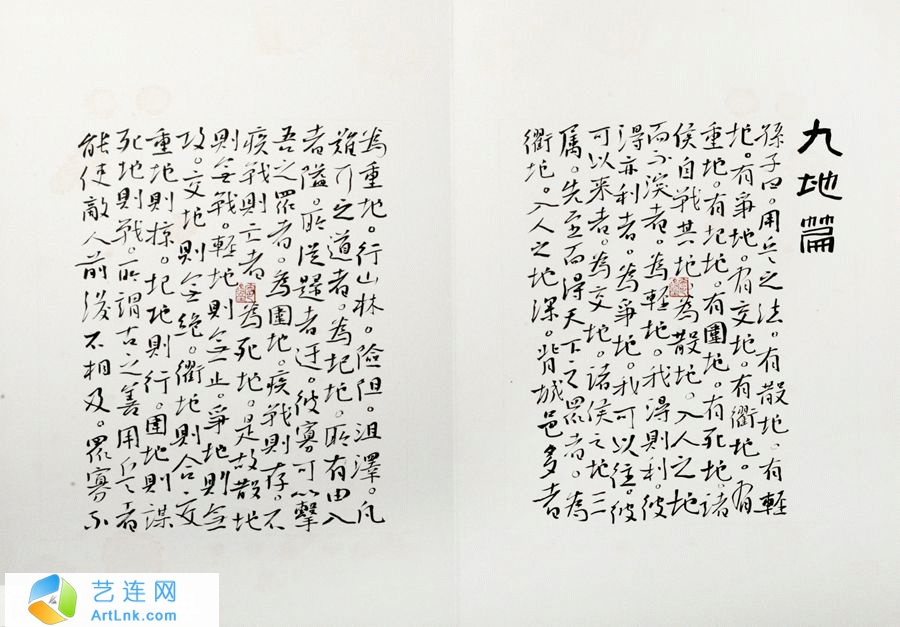 九地篇
孫子曰。用兵之法。有散地。有輕
地。有爭地。有交地。有衢地。有
重地。有圮地。有圍地。有死地。諸
侯自戰其地。為散地。入人之地
而不深者。為輕地。我得則利。彼
得亦利者。為爭地。我可以往。彼
可以来者。為交地。諸侯之地三
属。先至而得天下之眾者。為
衢地。入人之地深。背城邑多者
為重地。行山林。險阻。沮澤。凡
難行之道者。為圮地。所有由入
者隘。所從歸者迂。彼寡可以擊
吾之眾者。為圍地。疾戰則存。不
疾戰則亡者。為死地。是故散地
則無戰。輕地則無止。爭地則無
攻。交地則無絕。衢地則合交
重地則掠。圮地則行。圍地則謀
死地則戰。所謂古之善用兵者
能使敵人前後不相及。眾寡不
艺连网
ArtLnk.com